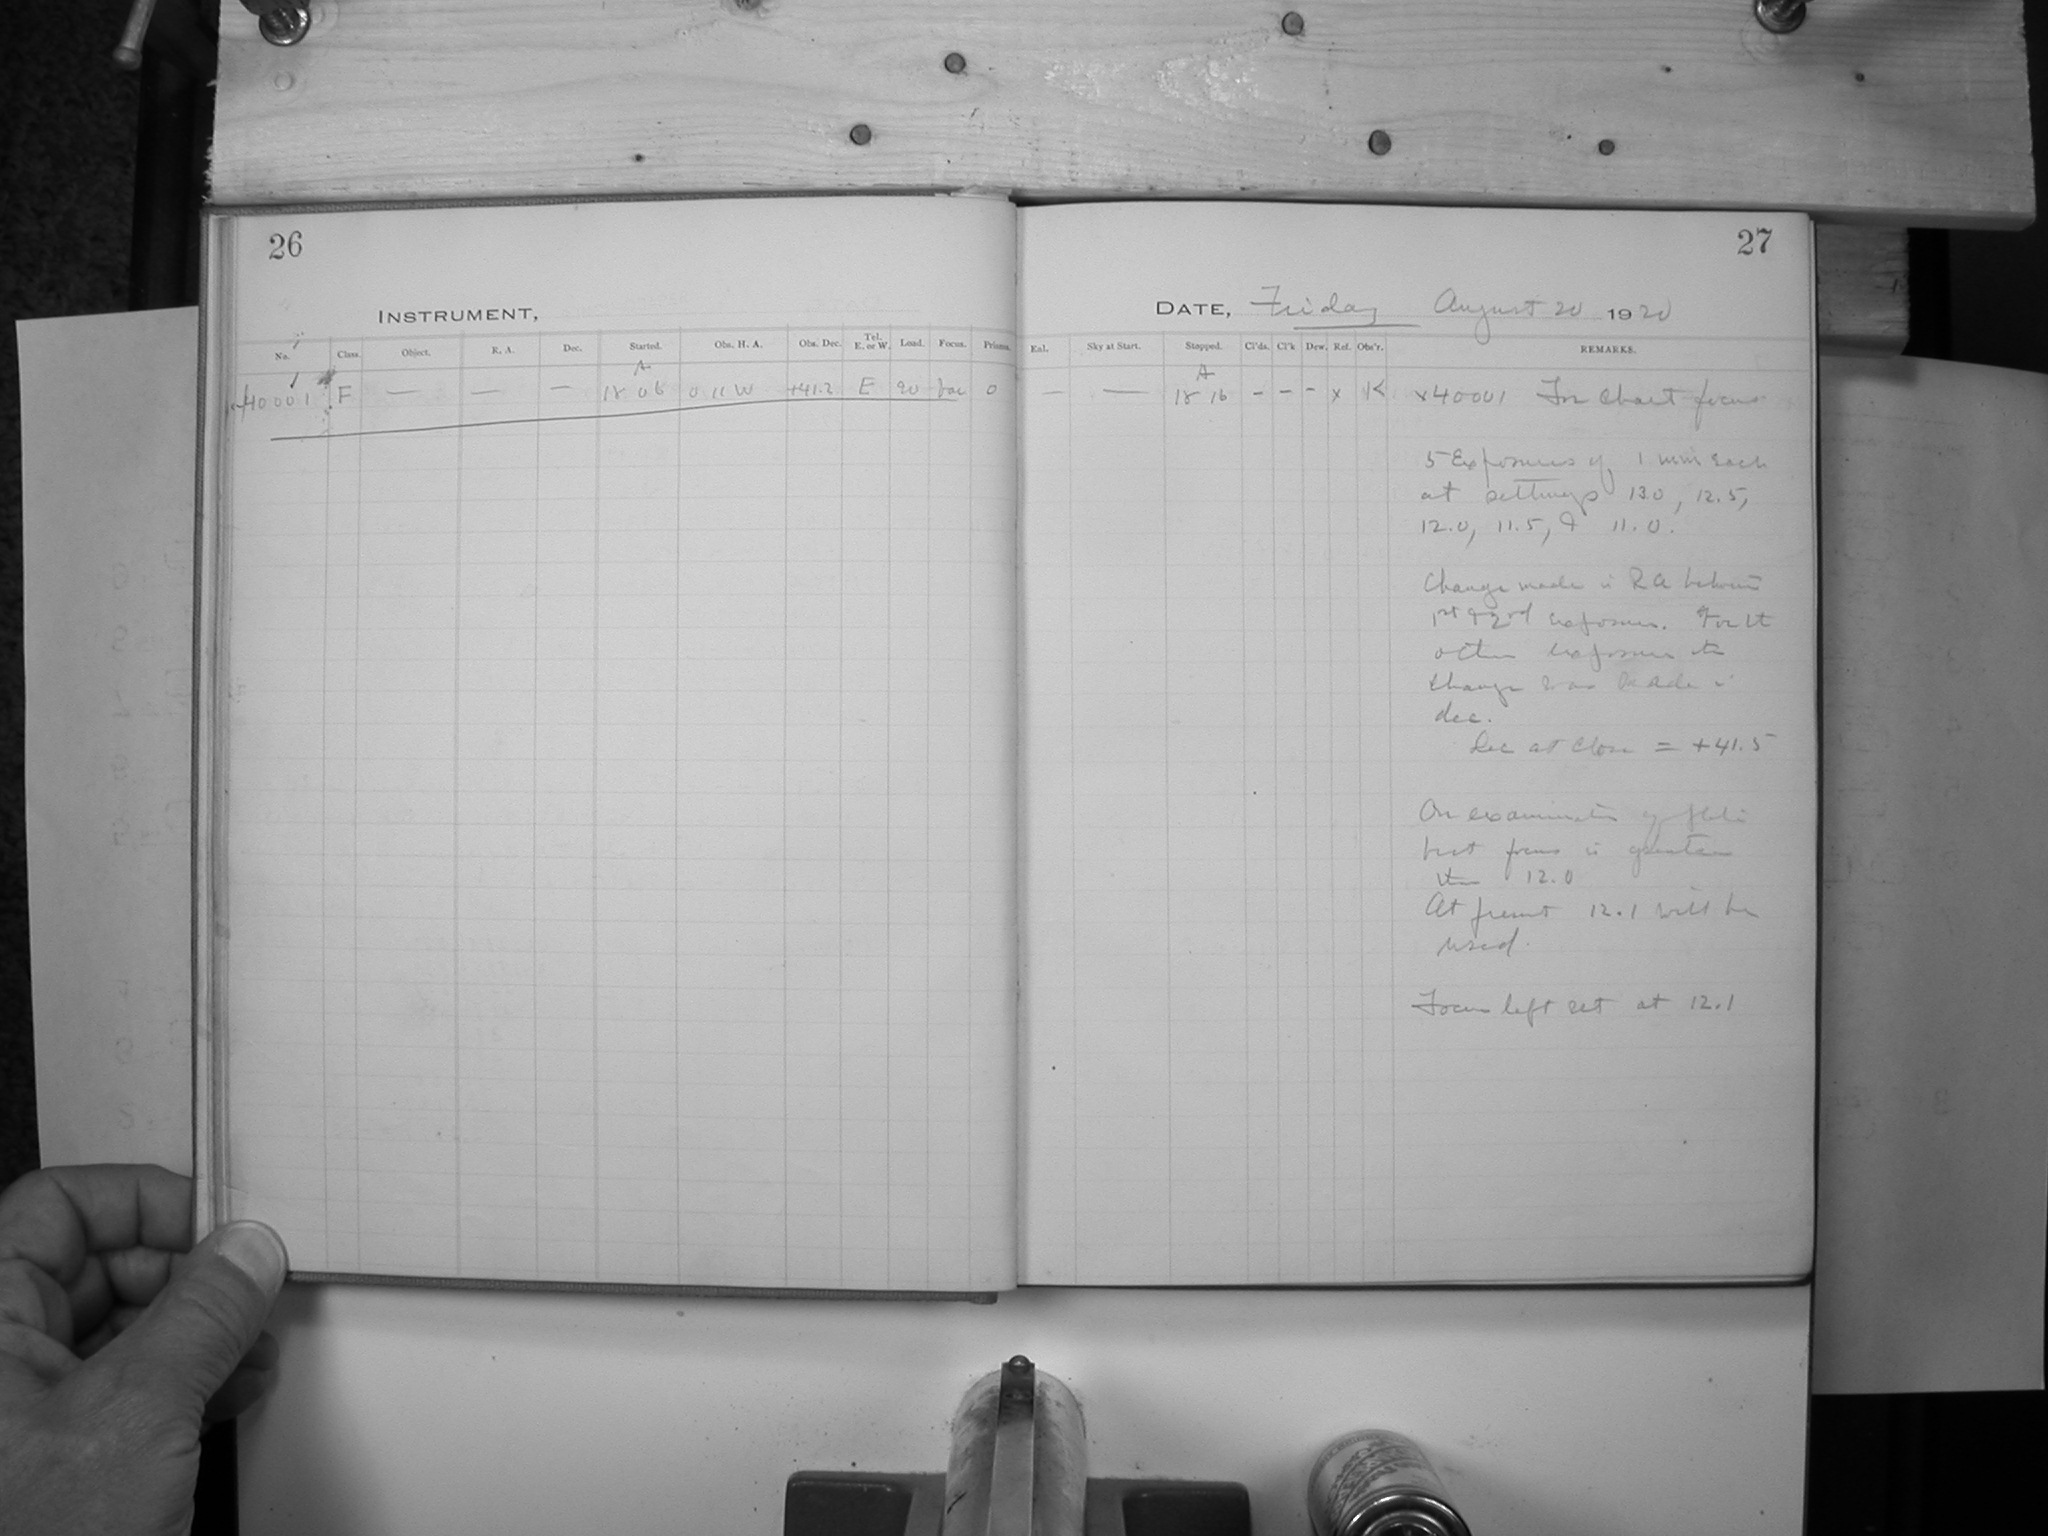 26
INSTRUMENT,
No. Class. Object. R. A. Dec. Started. Obs. H. A. Obs. Dec. Tel. E. or W. Load. Focus. Prisms.
A
40001 F — — — 18 06 0 11 W +41.2 E 20 0
27
DATE, Friday August 20 1920
Exl. Sky at Start. Stopped. Cl'ds. Cl'k Dew. Rel. Obs'r. REMARKS.
A
— — 18 16 - - - x K x40001 For Chart focus
5 Exposures of 1 min each
at settings 13.0, 12.5,
12.0, 11.5, & 11.0.
Change made in RA between
1st & 2nd exposures. For the
other exposures the
change was made in
dec.
Dec at Close = +41.5
On examination of plate
best focus is greater
than 12.0
At present 12.1 will be
used.
Focus left set at 12.1